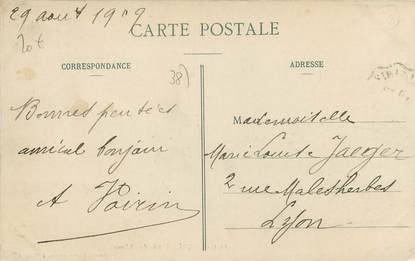 29 aout 1909
20 €
CARTE POSTALE
CORRESPONDANCE
ADRESSE
38)
Bonnes pensées
amical bonjour
A Voirin
Mademoiselle
Marie Louise Jaeger
2 rue Malesherbes
Lyon